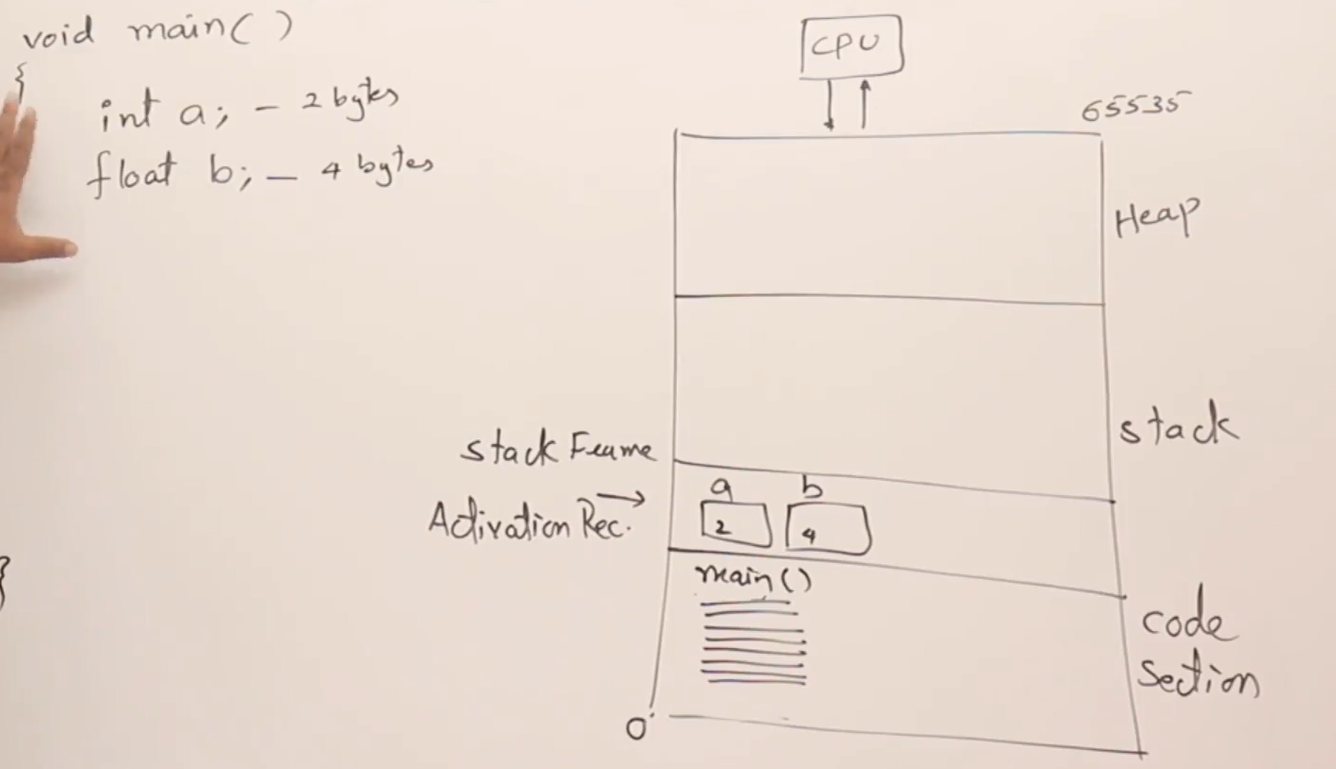 void main( )
{
int a; - 2 bytes
float b; - 4 bytes
}
CPU
65535
Heap
stack
stack Frame
Activation Rec. →
a b
2 4
main()
code
section
0